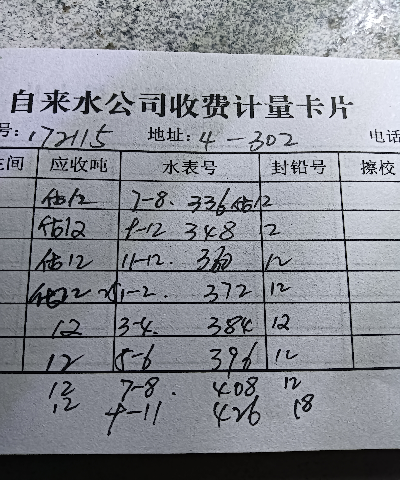 自来水公司收费计量卡片
号:172115 地址:4-302 电话
间 应收吨 水表号 封铅号 擦校
估12 7-8. 336估12
估12 9-12 348 2
估12 11-12. 360 12
估12 1-2. 372 12
12 3-4. 384 12
12 5-6 396 12
12 7-8. 408 12
12 9-11 426 18